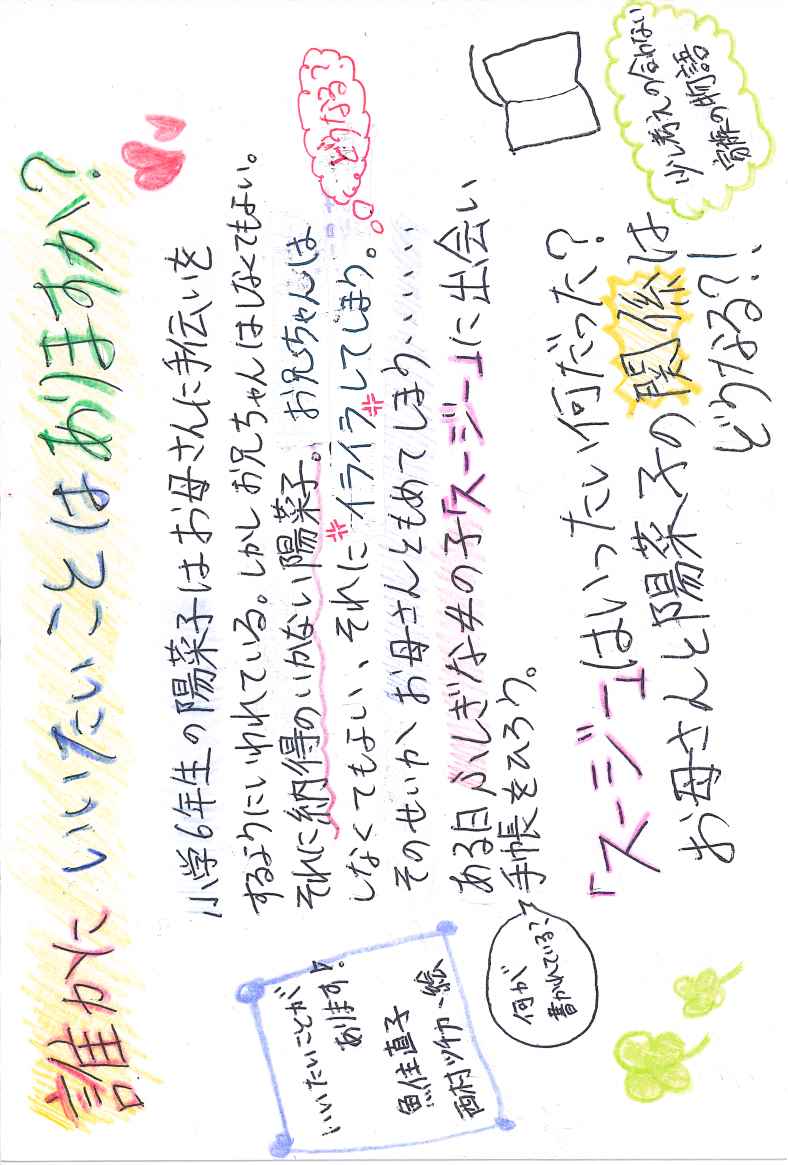 誰かにいいたいことはありますか?
小学6年生の陽菜子はお母さんに手伝いを
するようにいわれている。しかしお兄ちゃんはしなくてもよい。
それに納得のいかない陽菜子。お兄ちゃんは
しなくてもよい、それにイライラしてしまう。
そのせいかお母さんともめてしまう......
ある日ふしぎな女の子「スージー」に出会い
手帳をひろう。
何が
書かれている?
「スージー」はいったい何だった?
お母さんと陽菜子の関係は
どうなる?!
少し考えの合わない
家族の物語
いいたいことが
あります!
魚住直子
西村ツチカ・絵